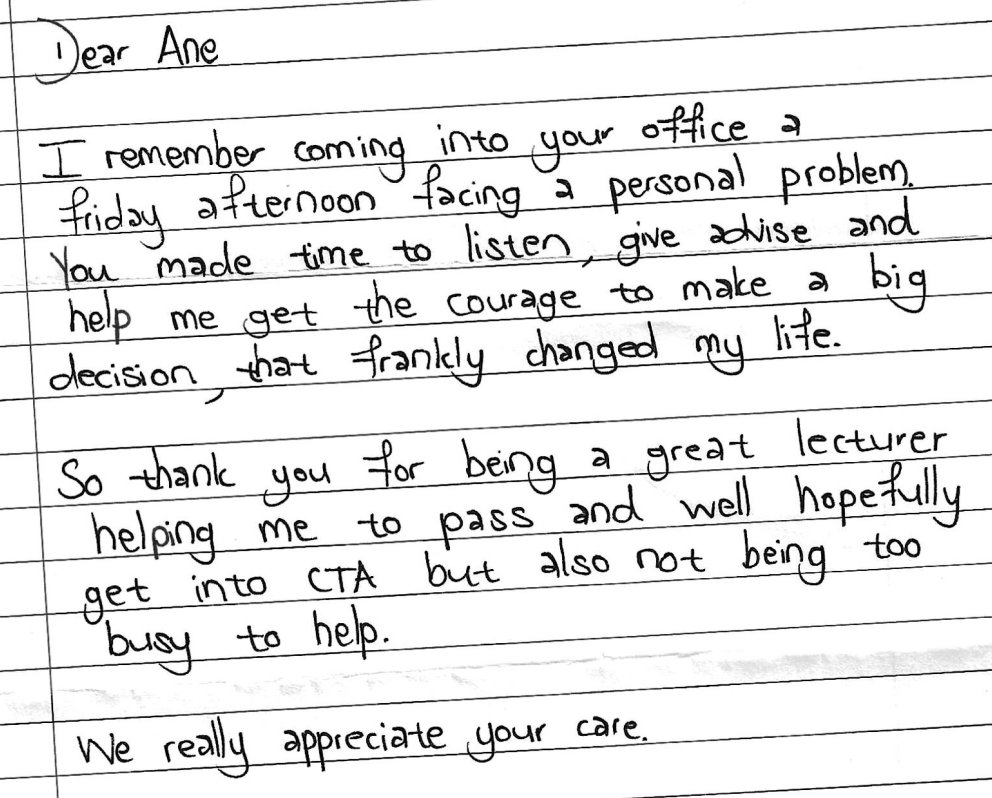 Dear Ane
I remember coming into your office a
friday afternoon facing a personal problem.
You made time to listen, give advise and
help me get the courage to make a big
decision, that frankly changed my life.
So thank you for being a great lecturer
helping me to pass and well hopefully
get into CTA but also not being too
busy to help.
We really appreciate your care.